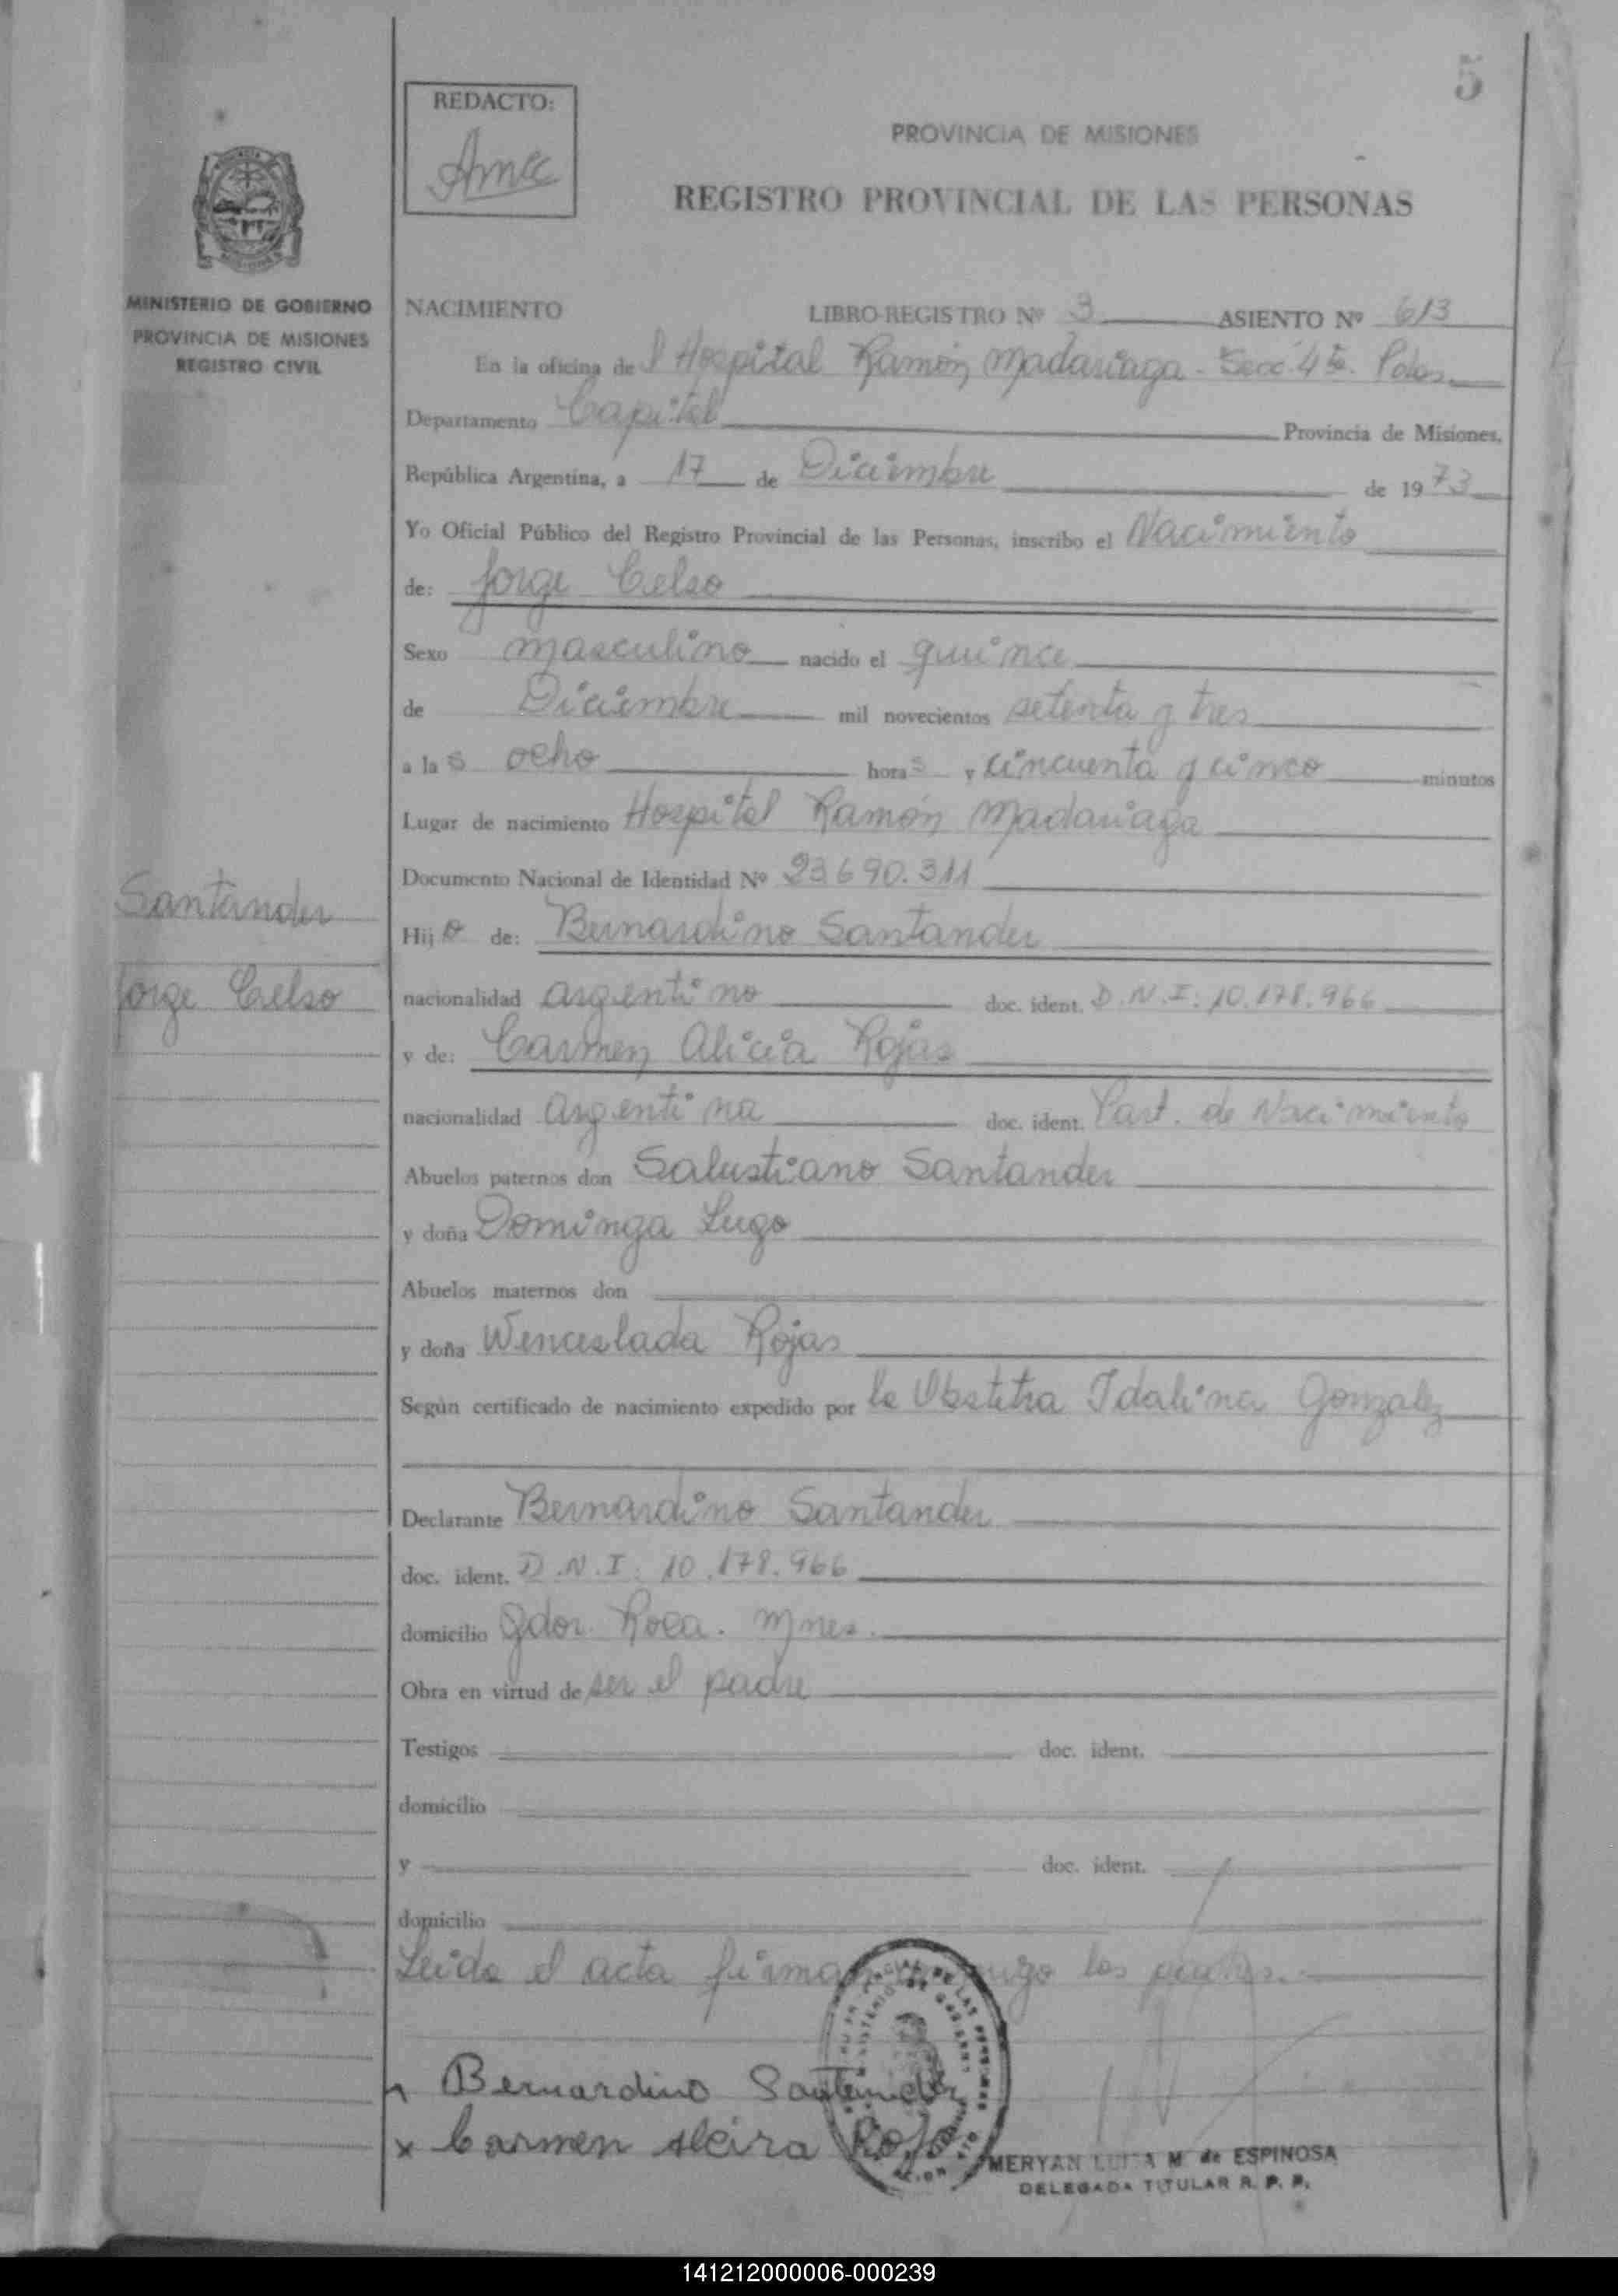 5
REDACTO:
PROVINCIA DE MISIONES
REGISTRO PROVINCIAL DE LAS PERSONAS
MINISTERIO DE GOBIERNO
PROVINCIA DE MISIONES
REGISTRO CIVIL
NACIMIENTO LIBRO-REGISTRO Nº 3 ASIENTO Nº 613
En la oficina de l Hospital Ramón Madariaga - Secc. 4ta. Pdas.
Departamento Capital Provincia de Misiones,
República Argentina, a 17 de Diciembre de 1973
Yo Oficial Público del Registro Provincial de las Personas, inscribo el Nacimiento
de: Jorge Celso
Sexo masculino nacido el quince
de Diciembre mil novecientos setenta y tres
a las ocho horas y cincuenta y cinco minutos
Lugar de nacimiento Hospital Ramón Madariaga
Documento Nacional de Identidad Nº 23.690.311
Santander
Jorge Celso
Hijo de: Bernardino Santander
nacionalidad argentino doc. ident. D.N.I: 10.178.966
y de: Carmen Alicia Rojas
nacionalidad argentina doc. ident. Part. de Nacimiento
Abuelos paternos don Salustiano Santander
y doña Dominga Lugo
Abuelos maternos don
y doña Wenceslada Rojas
Según certificado de nacimiento expedido por la Obstetra Idalina Gonzalez
Declarante Bernardino Santander
doc. ident. D.N.I: 10.178.966
domicilio Gdor. Roca. Mnes.
Obra en virtud de ser el padre
Testigos doc. ident.
domicilio
y doc. ident.
domicilio
Leida el acta firman los padres.
Bernardino Santander
x Carmen Rojas
MERYAN LUISA M. de ESPINOSA
DELEGADA TITULAR R. P. P.
141212000006-000239